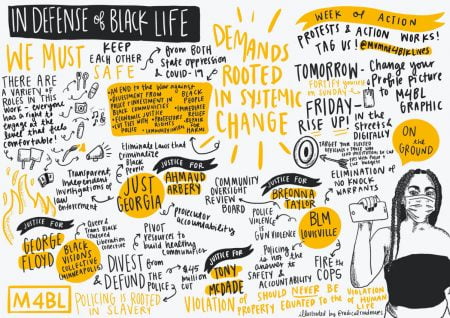 IN DEFENSE of BLACK LIFE
WE MUST
KEEP
EACH OTHER
SAFE
from BOTH
State oppression
& COVID-19
THERE ARE
A VARIETY OF
ROLES IN THIS
everyone
has a right to
engage at the
level that feels
comfortable!
AN END to the War against
BLACK COMMUNITIES
ECONOMIC JUSTICE
DEMANDS
ROOTED
IN SYSTEMIC
CHANGE
WEEK of ACTION
PROTESTS & ACTION WORKS!
TAG US! @MVMNT4BLKLIVES
TOMORROW-
FORTIFY yourself
in SUNDAY
Change your
profile picture
to M4BL
GRAPHIC
FRIDAY-
RISE UP!
IN the
STREETS &
DIGITALLY
TARGET your ELECTED
OFFICIALS
ON
the
GROUND
Eliminate laws that
criminalize
Black
people
Transparent,
Independent
investigations of
law
enforcement
JUSTICE FOR
AHMAUD
ARBERY
JUST
GEORGIA
prosecutor
accountability
COMMUNITY
OVERSIGHT
REVIEW
BOARD
JUSTICE FOR
BREONNA
TAYLOR
BLM
LOUISVILLE
ELIMINATION
of NO KNOCK
WARRANTS
POLICE
VIOLENCE
is
GUN VIOLENCE
Policing is
not the
answer to
SAFETY &
ACCOUNTABILITY
FIRE the
COPS
JUSTICE FOR
GEORGE
FLOYD
BLACK
VISIONS
COLLECTIVE
(MINNEAPOLIS)
Queer &
Trans Black
Centered
Liberation
collective
Pivot
resources to
build healthy
communities
DIVEST from
& DEFUND the
POLICE
$45
million
cut
JUSTICE for
TONY
McDADE
VIOLATION of
PROPERTY
SHOULD NEVER BE
EQUATED to the
VIOLATION
of HUMAN
LIFE
M4BL
POLICING IS ROOTED
IN SLAVERY
illustrated by @radicalroadmaps